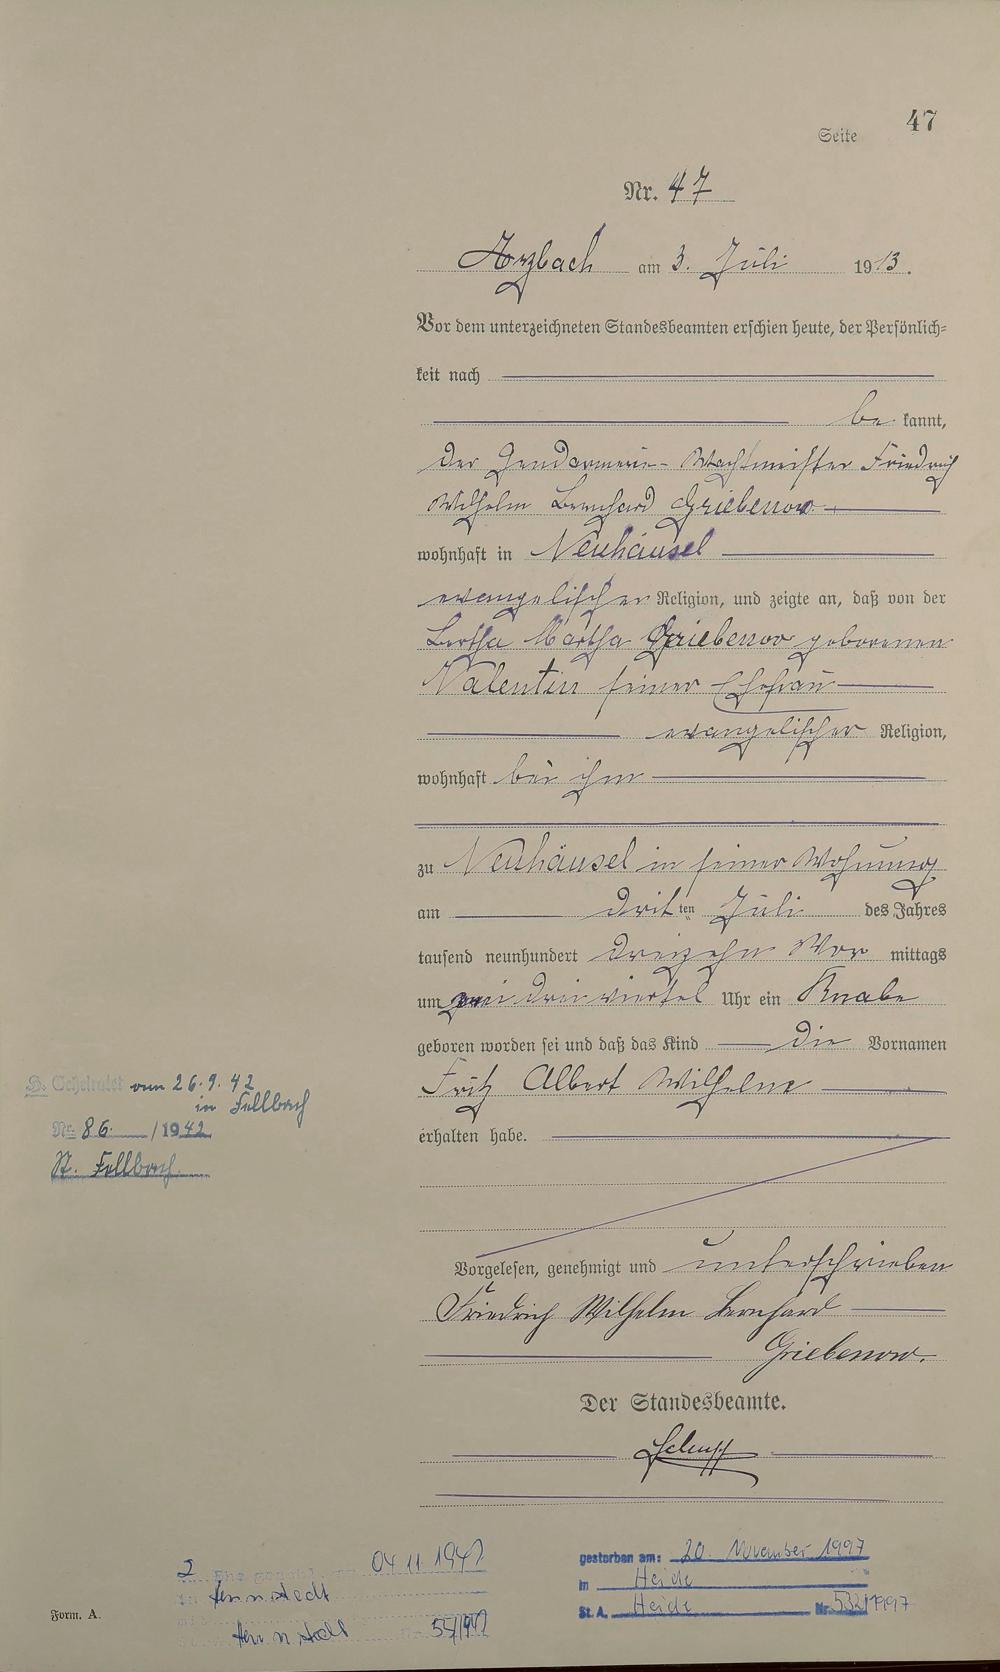 Seite 47
Nr. 47
Arzbach am 3. Juli 1913.
Vor dem unterzeichneten Standesbeamten erschien heute, der Persönlich-
keit nach
be kannt,
der Gendarmerie-Wachtmeister Friedrich
Wilhelm Bernhard Griebenow
wohnhaft in Neuhäusel
evangelischer Religion, und zeigte an, daß von der
Bertha Martha Griebenow geborenen
Valentin seiner Ehefrau
evangelischer Religion,
wohnhaft bei ihm
zu Neuhäusel in seiner Wohnung
am dritten Juli des Jahres
tausend neunhundert dreizehn Vor mittags
um drei viertel Uhr ein Knabe
geboren worden sei und daß das Kind die Vornamen
Fritz Albert Wilhelm
erhalten habe.
vom 26.9.42
in Fellbach
Nr. 86 /1942
St. Fellbach
Vorgelesen, genehmigt und unterschrieben
Friedrich Wilhelm Bernhard
Griebenow.
Der Standesbeamte.
2
gestorben am: 20. November 1997
in Heide
St. A. Heide Nr. 532/1997
Form. A.